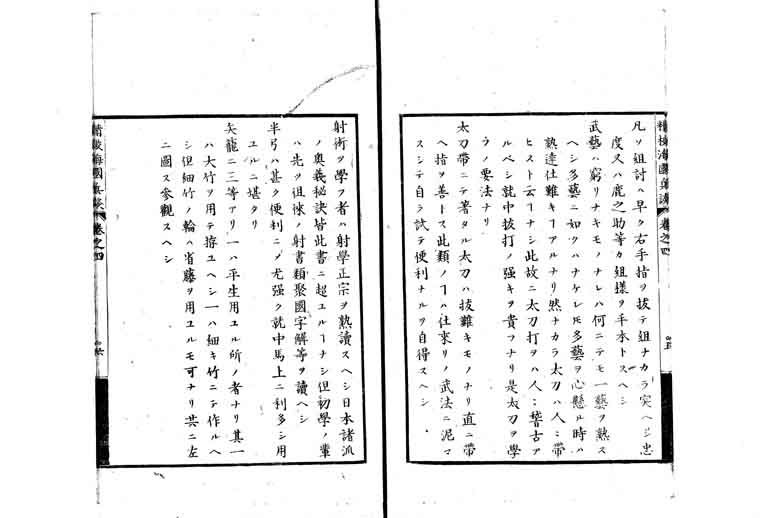 凡ソ組討ハ早ク右手指ヲ抜テ組ナカラ突ヘシ忠
度又ハ鹿之助等カ組様ヲ手本トスヘシ
武藝ハ窮リナキモノナレハ何ニテモ一藝ヲ熟ス
ヘシ多藝ニ如クハナケレ𪜈多藝ヲ心懸ル時ハ
熟達仕難キヿアルナリ然ナカラ太刀ハ人々帯
ヒスト云ヿナシ此故ニ太刀打ヲハ人々誓古ア
ルベシ就中抜打ノ强キヲ貴フナリ是太刀ヲ學
フノ要法ナリ
太刀帯ニテ著タル太刀ハ抜難キモノナリ直ニ帯
ヘ指ヲ善トス此類ノヿハ仕來リノ武法ニ泥マ
スシテ自ラ試テ便利ナルヲ自得スヘシ
精校海國兵談 卷之四
射術ヲ學フ者ハ射學正宗ヲ熟讀スヘシ日本諸派
ノ奥義秘訣皆此書ニ超ユルヿナシ但初學ノ輩
ハ先ツ徂徠ノ射書類聚國字解等ヲ讀ヘシ
半弓ハ甚タ便利ニメ尤强ク就中馬上ニ利多シ用
ユルニ堪タリ
矢籠ニ三等アリ一ハ平生用ユル所ノ者ナリ其一
ハ大竹ヲ用テ搾ユヘシ一ハ細キ竹ニテ作ルヘ
シ但細竹ノ輪ハ省藤ヲ用ユルモ可ナリ共ニ左
ニ圖ス參觀スヘシ
精校海國兵談 卷之四